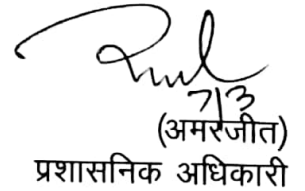 7/3
(अमरजीत)
प्रशासनिक अधिकारी